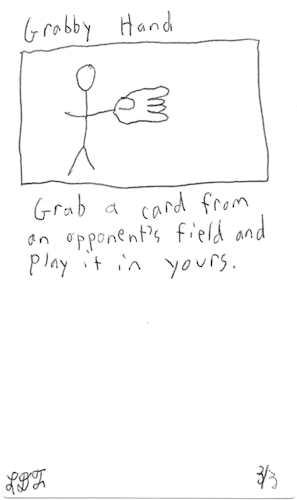 Grabby Hand
Grab a card from
an opponent's field and
play it in yours.
LDF 3/3